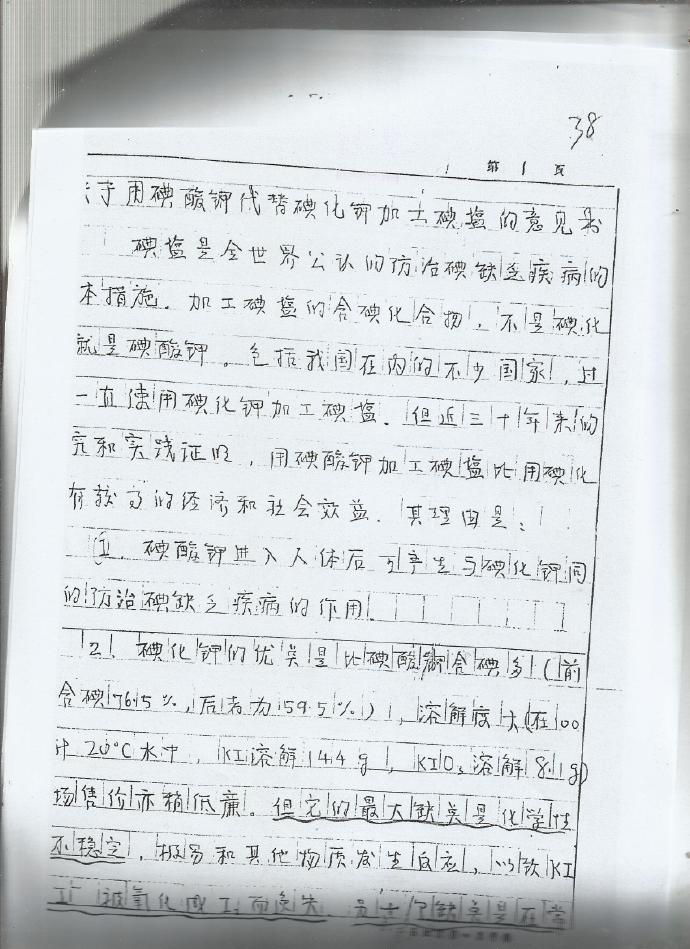 38
第1页
于用碘酸钾代替碘化钾加工碘盐的意见
碘盐是全世界公认的防治碘缺乏疾病的
本措施．加工碘盐的含碘化合物，不是碘化
就是碘酸钾。包括我国在内的不少国家，过
一直使用碘化钾加工碘盐．但近三十年来的
究和实践证明，用碘酸钾加工碘盐比用碘化
有较高的经济和社会效益．其理由是：
1．碘酸钾进入人体后可产生与碘化钾同
的防治碘缺乏疾病的作用．
2．碘化钾的优点是比碘酸钾含碘多（前
含碘76.5%，后者为59.5%），溶解度大（在100
20℃水中，KI溶解144g，KIO3溶解8.1g）
场售价亦稍低廉。但它的最大缺点是化学性
不稳定，极易和其他物质发生反应，以致KI
被氧化成I2而丧失．缺点是在常